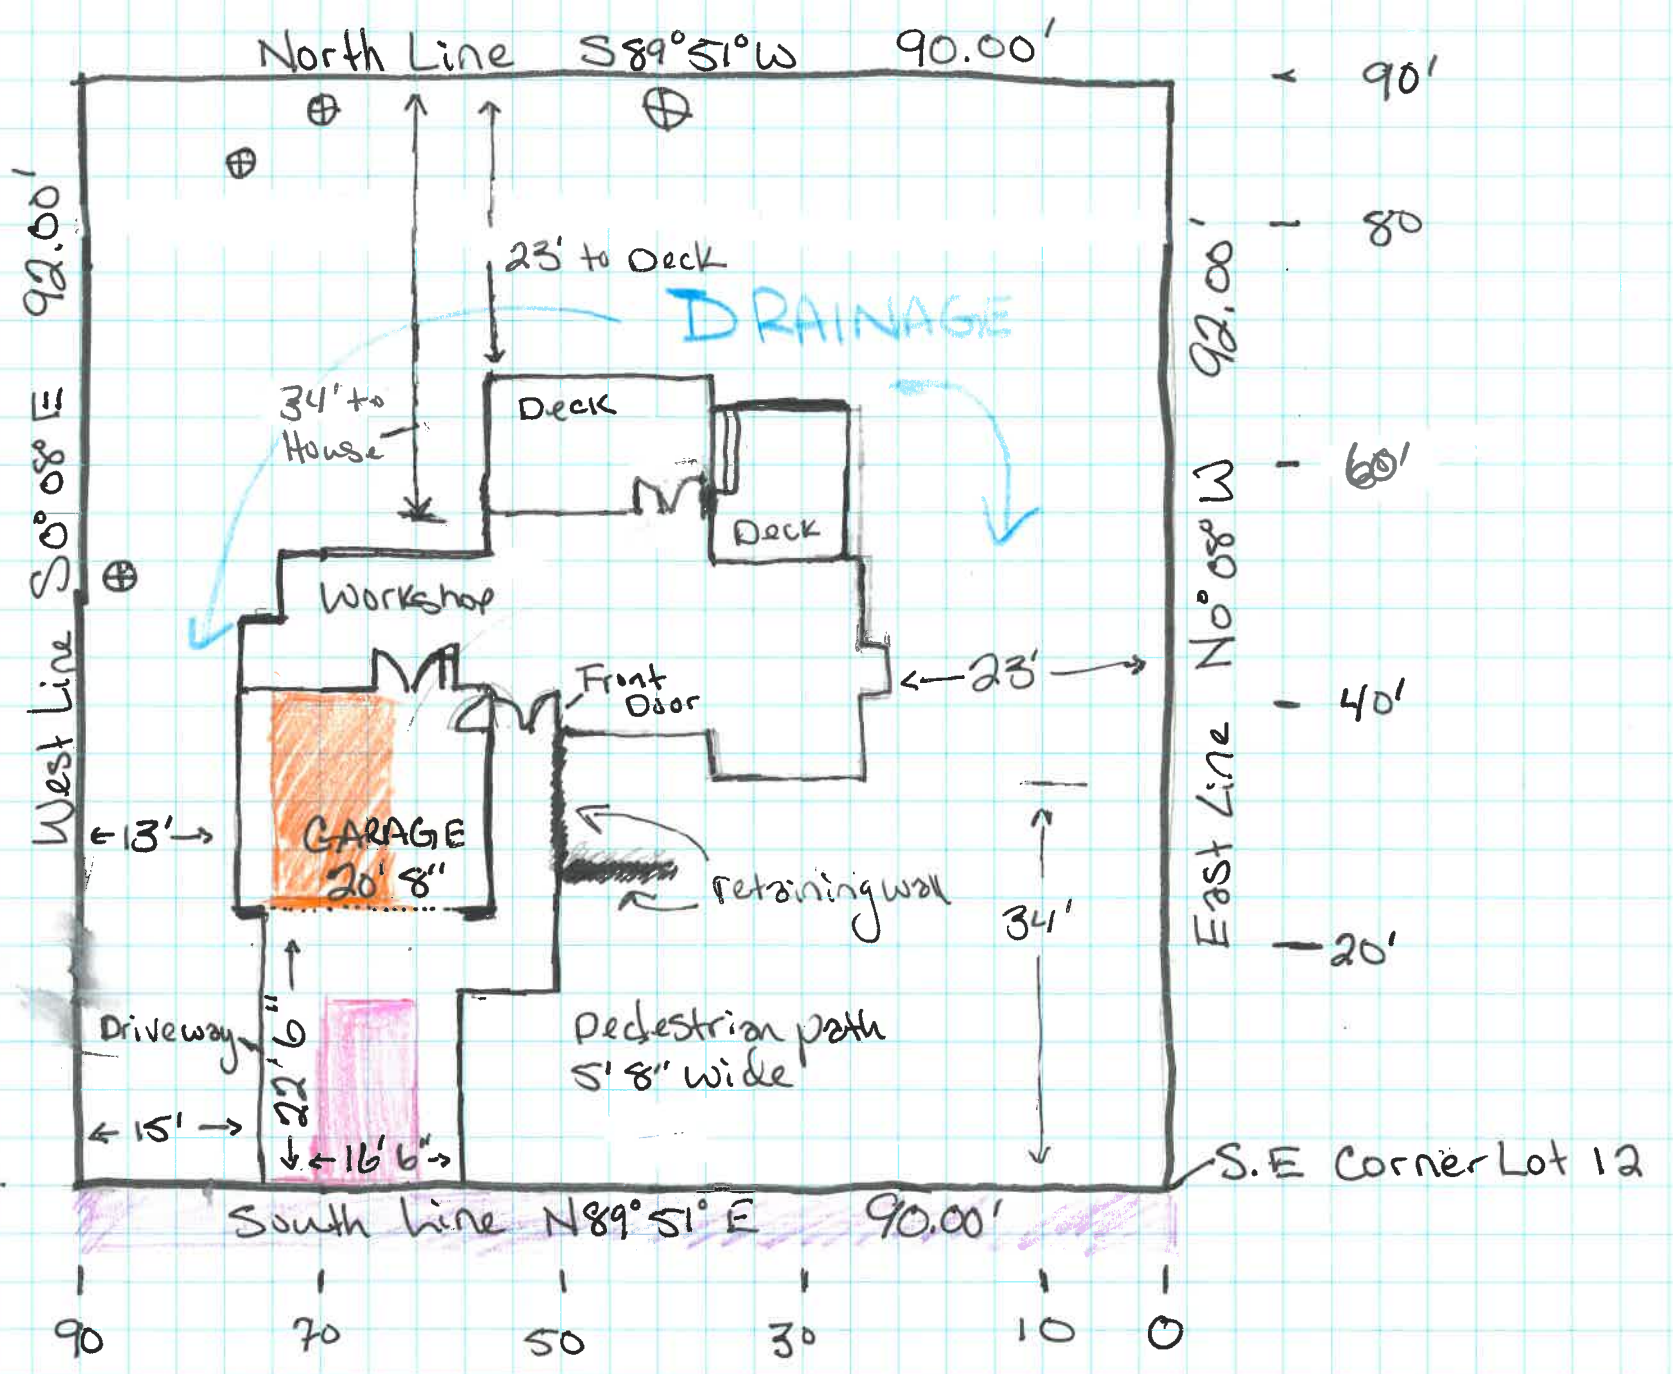 North Line S89°51°W 90.00'
90'
80
60'
40'
20'
West Line S0°08°E 92.00'
East Line N0°08°W 92.00'
23' to Deck
DRAINAGE
34' to
House
Deck
Deck
Workshop
Front
Door
←23'→
←13'→
GARAGE
20' 8"
retaining wall
34'
Driveway
22'6"
Pedestrian path
5'8" wide
←15'→
←16'6"→
S.E Corner Lot 12
South Line N89°51°E 90.00'
90 70 50 30 10 0